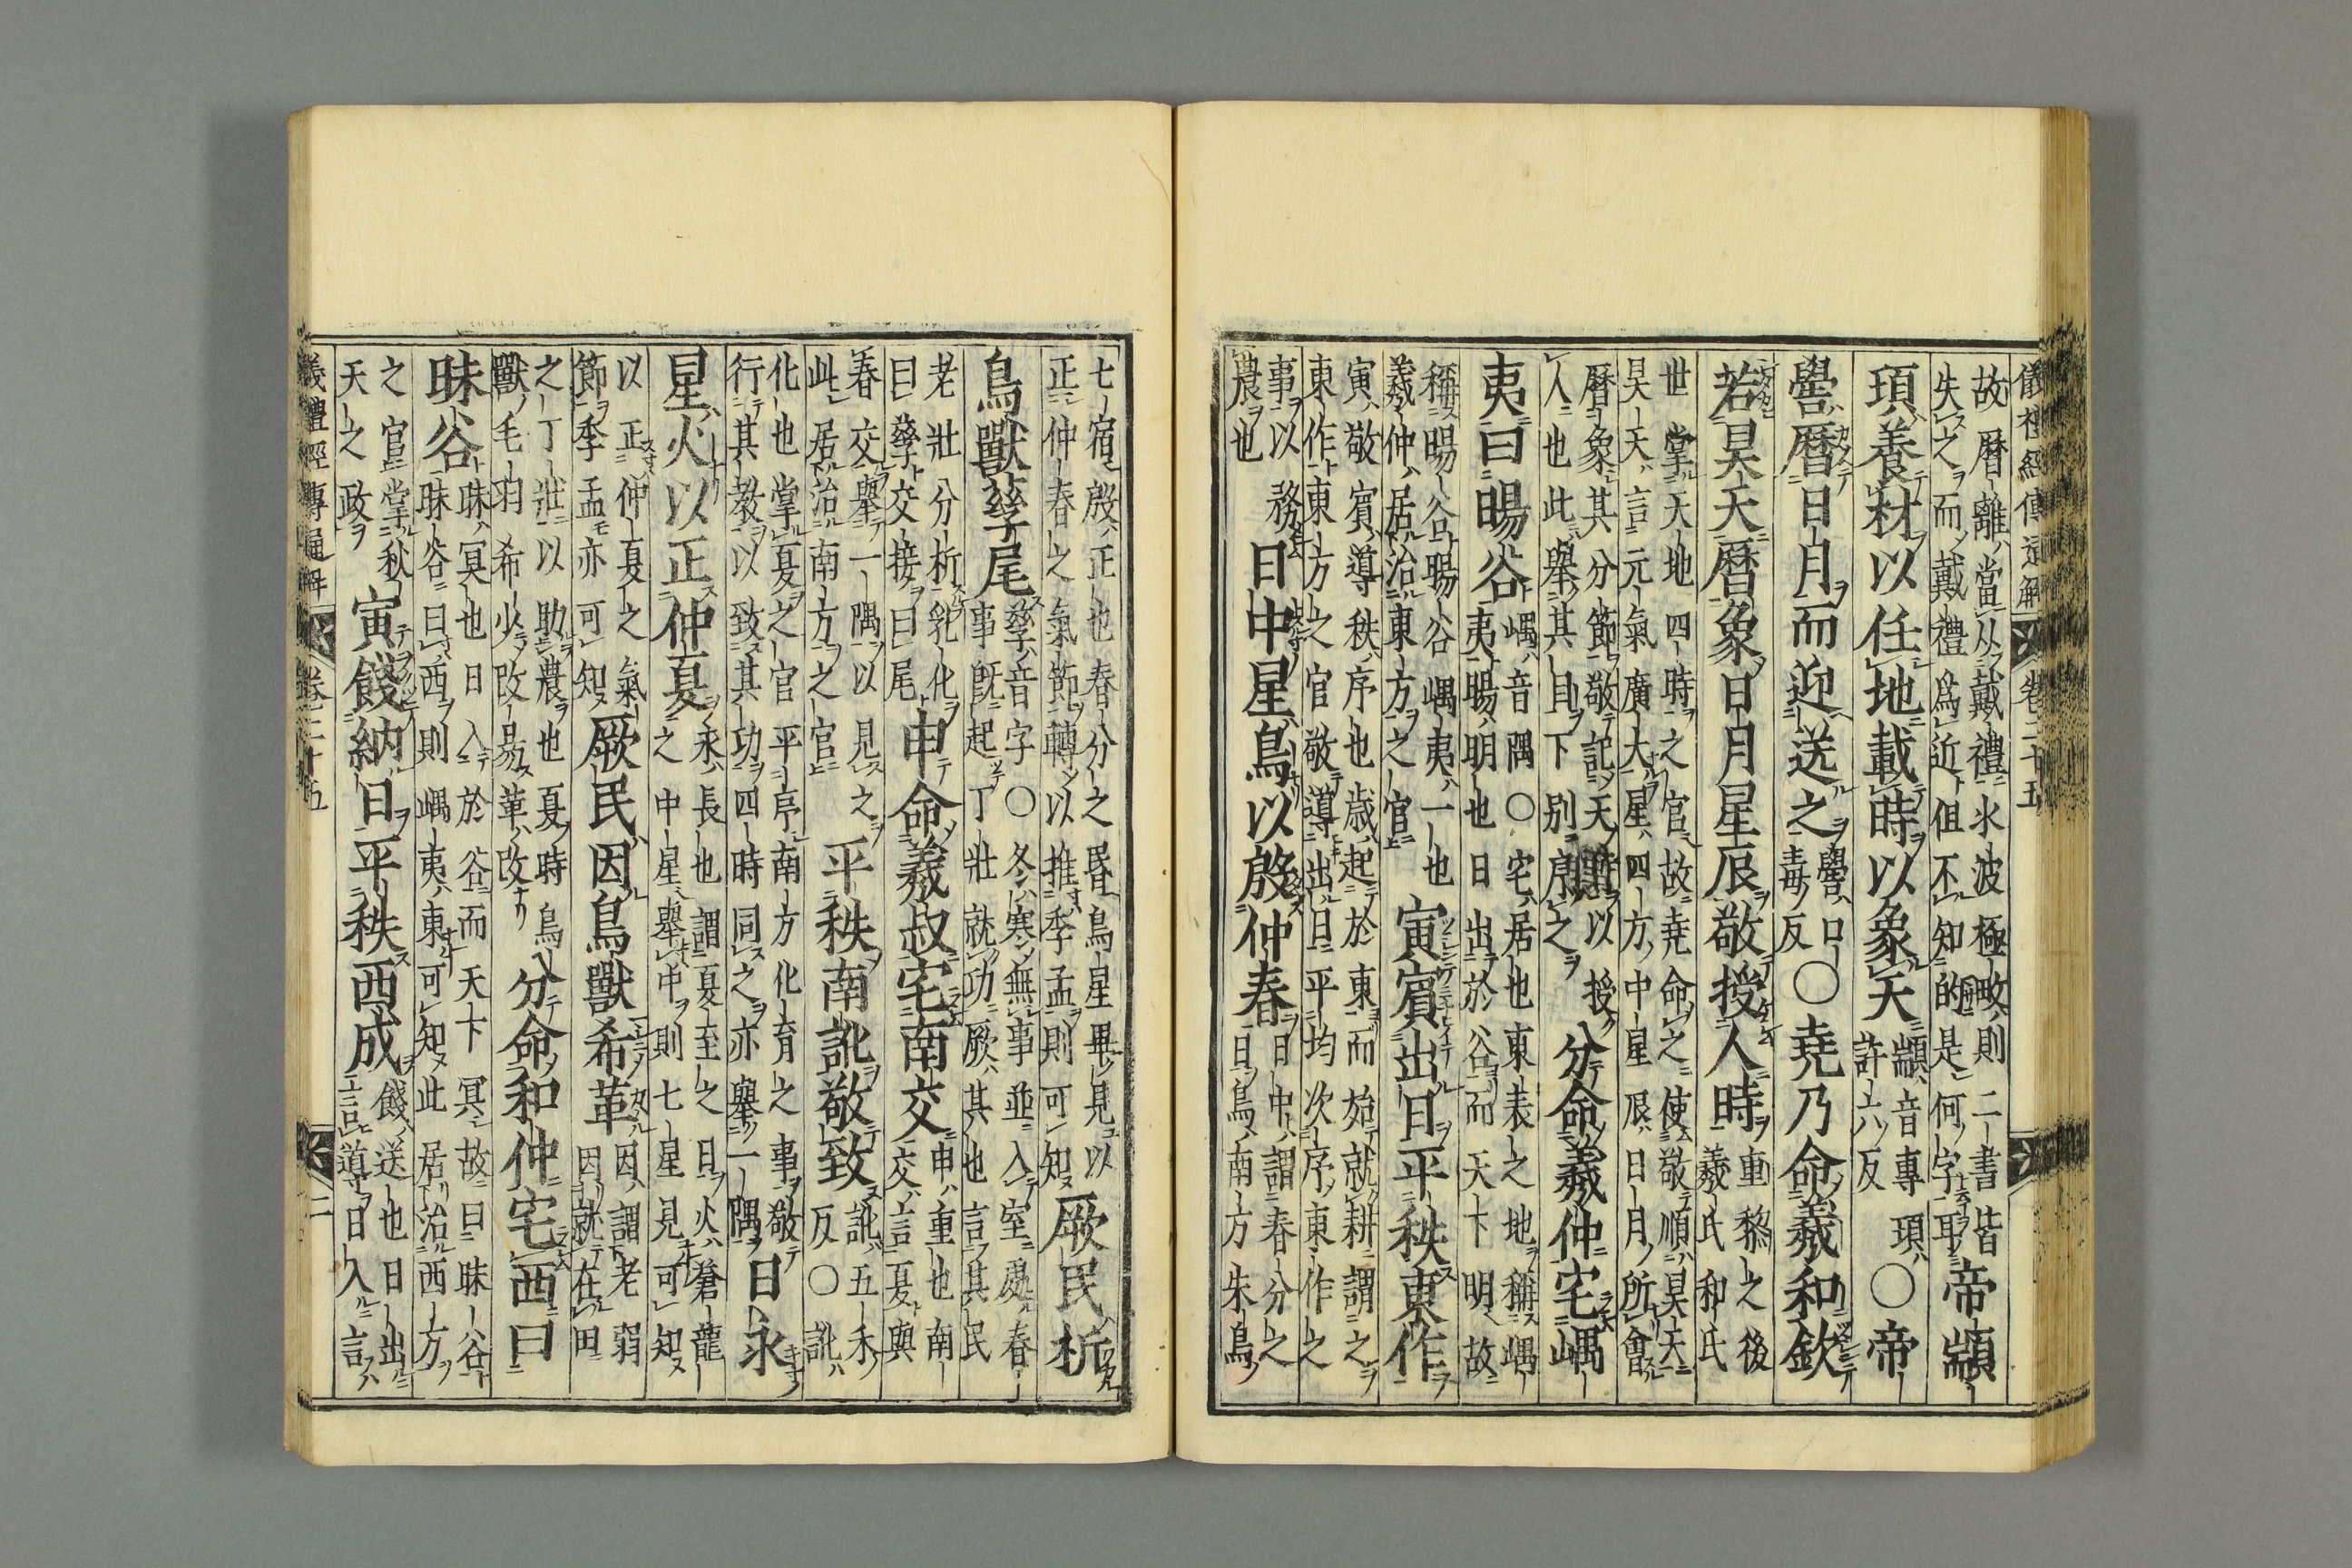 儀禮經傳通解 卷二十五
故曆離當从戴禮水波極畋則二書皆
失之而戴禮爲近但不知的是何字耳
帝顓
頊養材以任地載時以象天
顓音專頊
許六反
○帝
嚳曆日月而迎送之
嚳口
毒反
○堯乃命羲和欽
若昊天曆象日月星辰敬授人時
重黎之後
羲氏和氏
世掌天地四時之官故堯命之使敬順昊天
昊天言元氣廣大星四方中星辰日月所會
曆象其分節敬記天時以授
人也此舉其目下別序之
分命羲仲宅嵎
夷曰暘谷
嵎音隅○宅居也東表之地稱嵎
夷暘明也日出於谷而天下明故
稱暘谷暘谷嵎夷一也
羲仲居治東方之官
寅賓出日平秩東作
寅敬賓導秩序也歲起於東而始就耕謂之
東作東方之官敬導出日平均次序東作之
事以務
農也
日中星鳥以殷仲春
日中謂春分之
日鳥南方朱鳥
七宿殷正也春分之昏鳥星畢見以
正仲春之氣節轉以推季孟則可知
厥民析
鳥獸孳尾
孳音字○冬寒無事並入室處春
事旣起丁壯就功厥其也言其民
老壯分析乳化
曰孳交接曰尾
申命羲叔宅南交
申重也南
交言夏與
春交舉一隅以見之
此居治南方之官
平秩南訛敬致
訛五禾
反○訛
化也掌夏之官平序南方化育之事敬
行其教以致其功四時同之亦舉一隅
日永
星火以正仲夏
永長也謂夏至之日火蒼龍
之中星舉中則七星見可知
以正仲夏之氣
節季孟亦可知
厥民因鳥獸希革
因謂老弱
因就在田
之丁壯以助農也夏時鳥
獸毛羽希少改易革改
分命和仲宅西曰
昧谷
昧冥也日入於谷而天下冥故曰昧谷
昧谷曰西則嵎夷東可知此居治西方
之官掌秋
天之政
寅餞納日平秩西成
餞送也日出
言導日入言
儀禮經傳通解 卷二十五 二